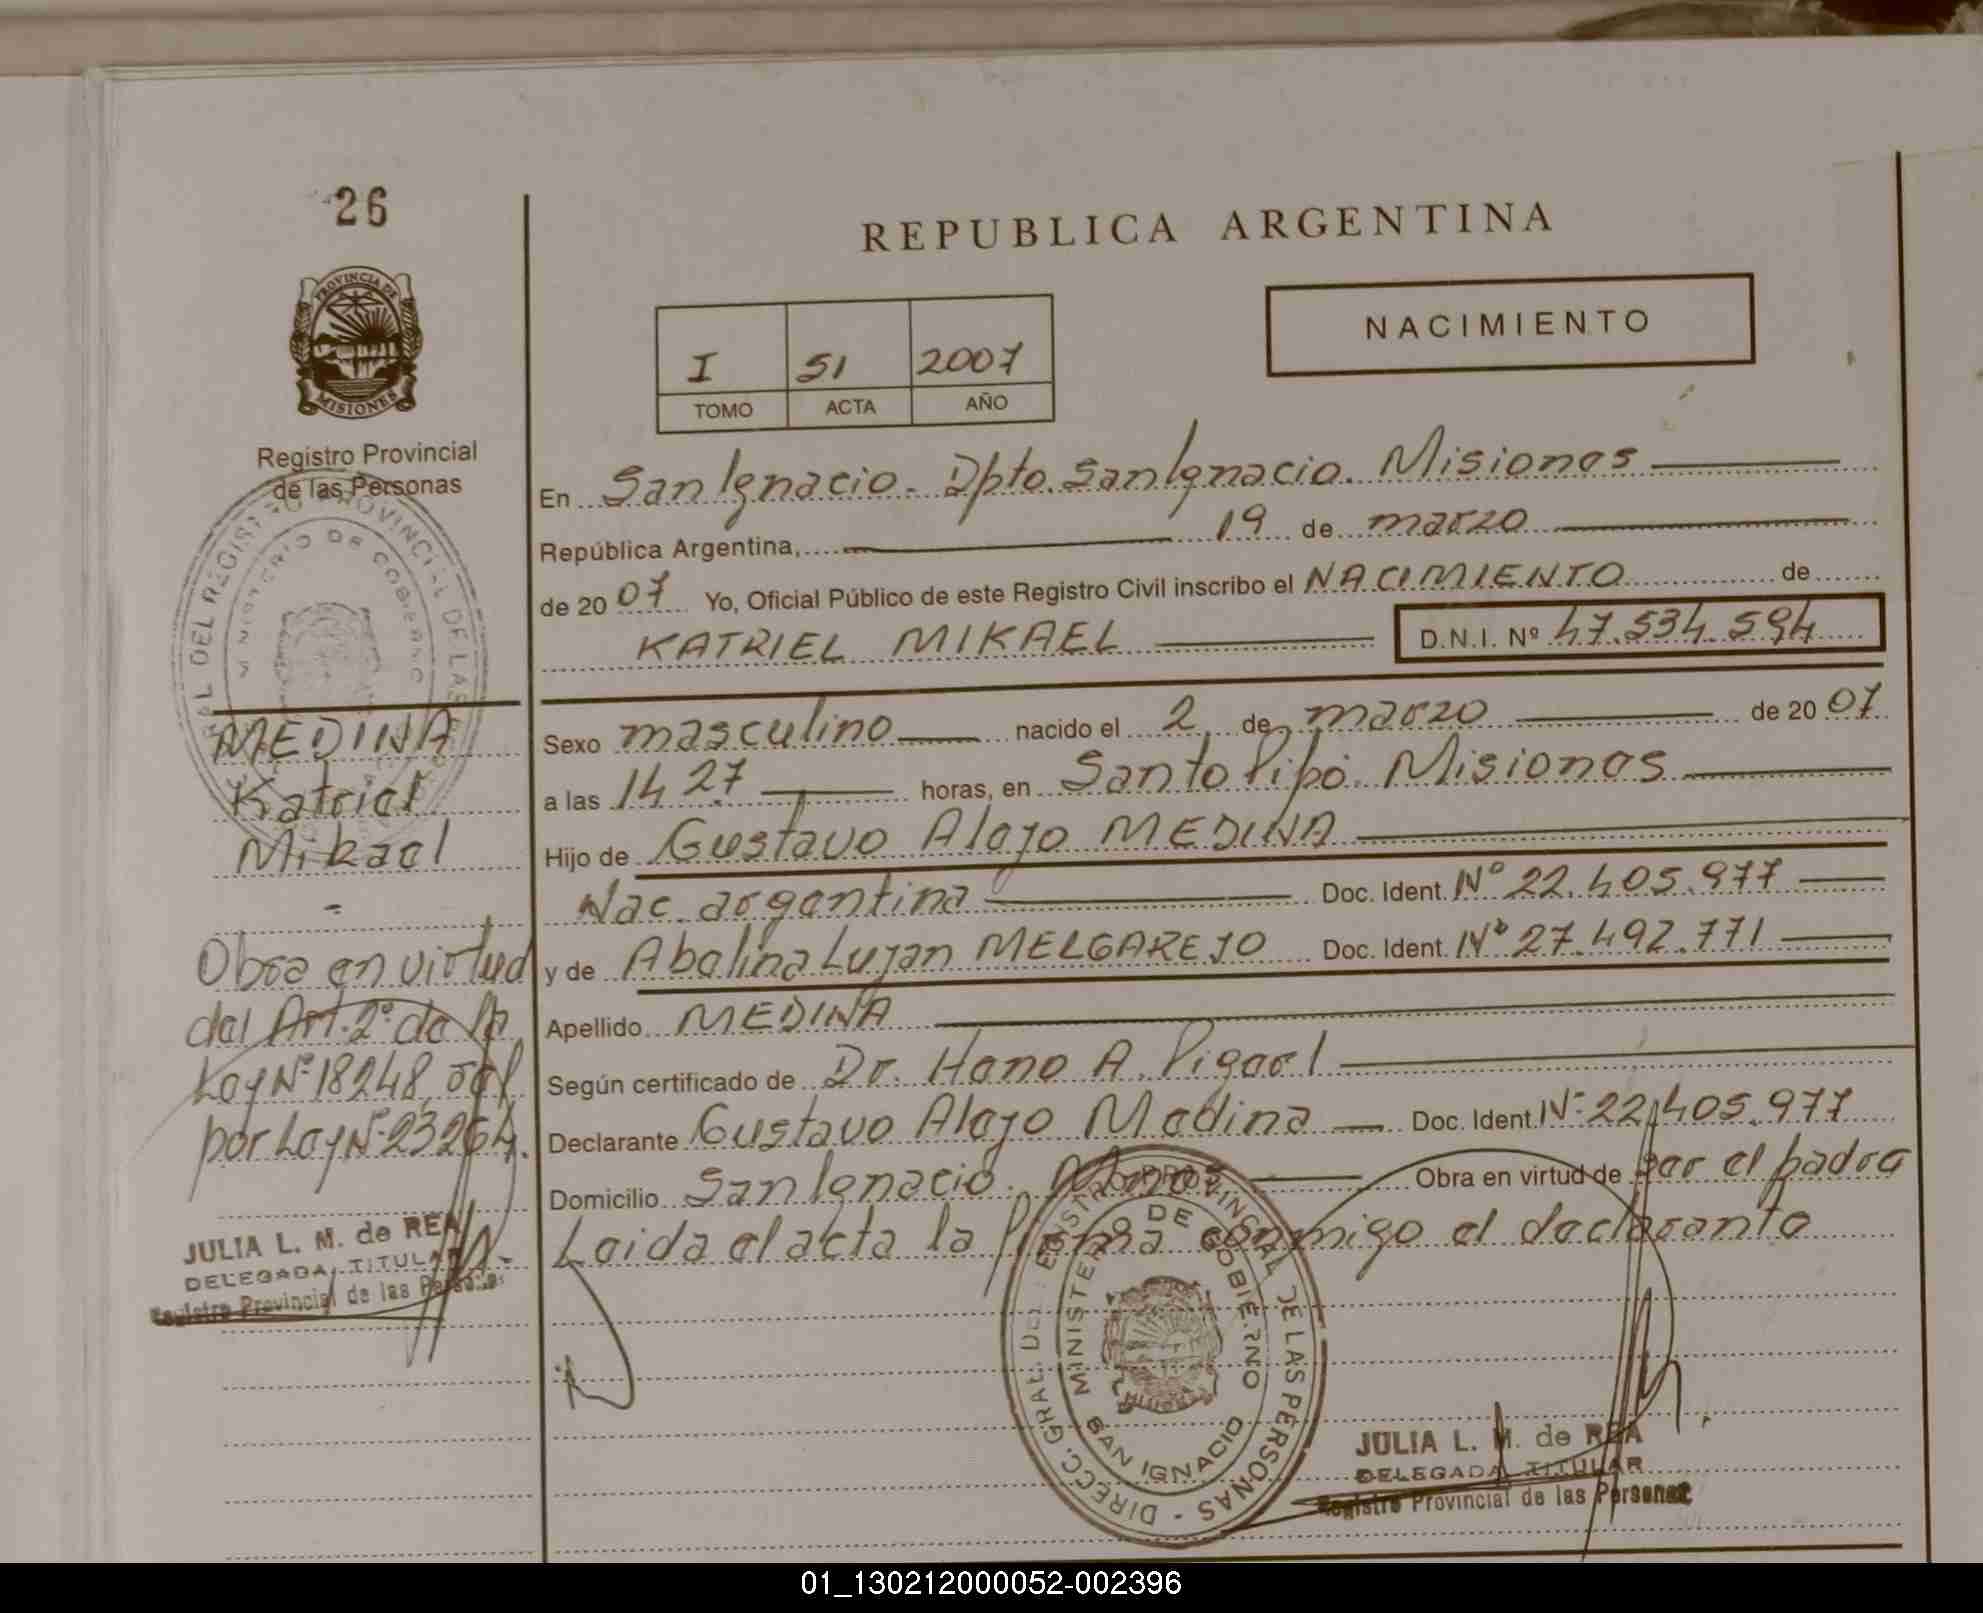 26
REPUBLICA ARGENTINA
PROVINCIA DE
MISIONES
NACIMIENTO
I 51 2007
TOMO ACTA AÑO
Registro Provincial
de las Personas
En San Ignacio. Dpto. San Ignacio. Misiones
República Argentina, 19 de marzo
de 2007 Yo, Oficial Público de este Registro Civil inscribo el NACIMIENTO de
KATRIEL MIKAEL D.N.I. Nº 47.534.594
Sexo masculino nacido el 2 de marzo de 2007
a las 14 27 horas, en Santo Pipó. Misiones
Hijo de Gustavo Alejo MEDINA
Nac. argentina Doc. Ident. Nº 22.405.977
y de Abelina Lujan MELGAREJO Doc. Ident. Nº 27.492.771
Apellido MEDINA
Según certificado de Dr. Hano A.
Declarante Gustavo Alejo Medina Doc. Ident. Nº 22.405.977
Domicilio San Ignacio. Mnes Obra en virtud de ser el padre
Leida el acta la firma conmigo el declarante
MEDINA
Katriel
Mikael
Obra en virtud
del Art. 2º de la
Ley Nº 18248, ref
por Ley Nº 23264.
JULIA L. M. de REA
DELEGADA TITULAR
Registro Provincial de las Personas
DIRECC. GRAL. DEL REGISTRO PROVINCIAL DE LAS PERSONAS
MINISTERIO DE GOBIERNO
SAN IGNACIO
JULIA L. M. de REA
DELEGADA TITULAR
Registro Provincial de las Personas
01_130212000052-002396